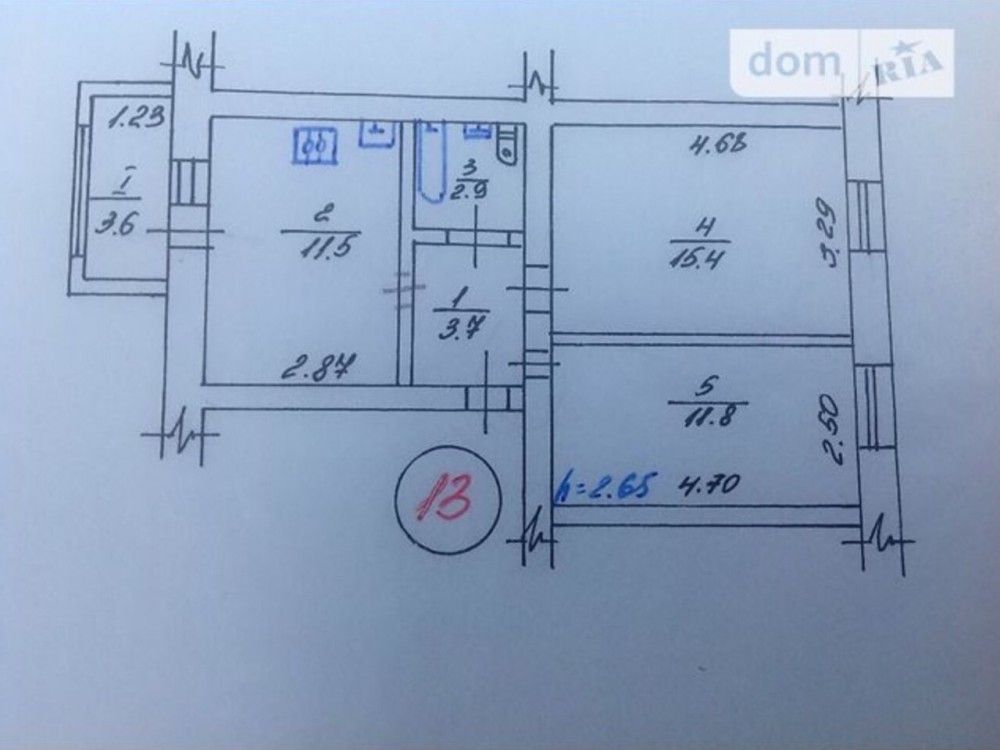 dom
RIA
1.23
I
3.6
2
11.5
2.87
3
2.9
1
3.7
4.68
3.29
4
15.4
5
11.8
2.50
h=2.65
4.70
13